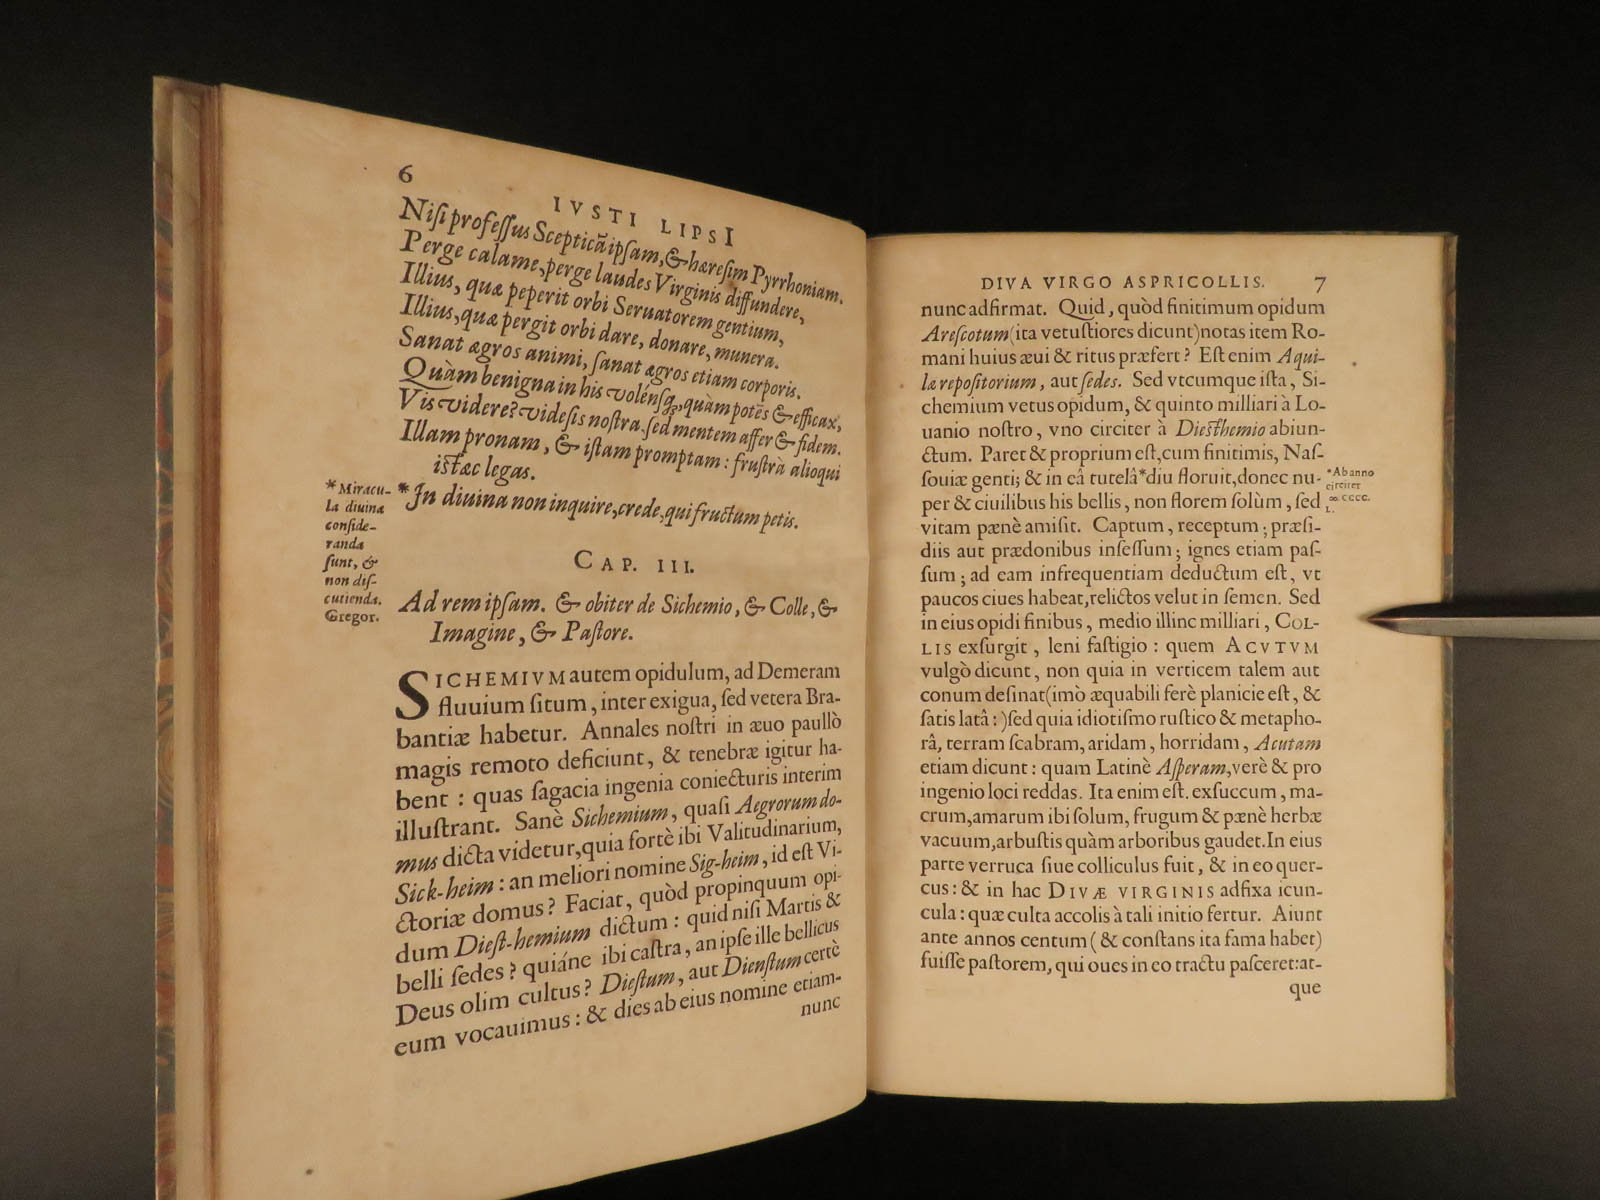 6
IVSTI LIPSI
Niſi profeſſus Scepticā ipſam, & hæreſim Pyrrhoniam.
Perge calame, perge laudes Virginis diffundere,
Illius, quæ peperit orbi Seruatorem gentium,
Illius, quæ pergit orbi dare, donare, munera.
Sanat ægros animi, ſanat ægros etiam corporis.
Quàm benigna in his volénſq;, quàm potēs & efficax,
Vis videre? videſis noſtra. ſed mentem affer & fidem.
Illam pronam, & iſtam promptam: fruſtrà alioqui
iſtæc legas.
*In diuina non inquire, crede, qui fructum petis.
*Miracu-
la diuina
conſide-
randa
ſunt, &
non diſ-
cutienda.
Gregor.
CAP. III.
Ad rem ipſam. & obiter de Sichemio, & Colle, &
Imagine, & Paſtore.
SICHEMIVM autem opidulum, ad Demeram
fluuium ſitum, inter exigua, ſed vetera Bra-
bantiæ habetur. Annales noſtri in æuo paullò
magis remoto deficiunt, & tenebræ igitur ha-
bent: quas ſagacia ingenia coniecturis interim
illuſtrant. Sanè Sichemium, quaſi Aegrorum do-
mus dicta videtur, quia fortè ibi Valitudinarium,
Sick-heim: an meliori nomine Sig-heim, id eſt Vi-
ctoriæ domus? Faciat, quòd propinquum opi-
dum Dieſt-hemium dictum: quid niſi Martis &
belli ſedes? quiáne ibi caſtra, an ipſe ille bellicus
Deus olim cultus? Dieſtum, aut Dienſtum certè
eum vocauimus: & dies ab eius nomine etiam-
nunc
DIVA VIRGO ASPRICOLLIS. 7
nunc adfirmat. Quid, quòd finitimum opidum
Areſcotum (ita vetuſtiores dicunt) notas item Ro-
mani huius æui & ritus præfert? Eſt enim Aqui-
læ repoſitorium, aut ſedes. Sed vtcumque iſta, Si-
chemium vetus opidum, & quinto milliari à Lo-
uanio noſtro, vno circiter à Dieſthemio abiun-
ctum. Paret & proprium eſt, cum finitimis, Naſ-
ſouiæ genti; & in eâ tutelâ *diu floruit, donec nu-
per & ciuilibus his bellis, non florem ſolùm, ſed
vitam pænè amiſit. Captum, receptum; præſi-
diis aut prædonibus inſeſſum; ignes etiam paſ-
ſum; ad eam infrequentiam deductum eſt, vt
paucos ciues habeat, relictos velut in ſemen. Sed
in eius opidi finibus, medio illinc milliari, COL-
LIS exſurgit, leni faſtigio: quem ACVTVM
vulgò dicunt, non quia in verticem talem aut
conum deſinat (imò æquabili ferè planicie eſt, &
ſatis latâ:) ſed quia idiotiſmo ruſtico & metapho-
râ, terram ſcabram, aridam, horridam, Acutam
etiam dicunt: quam Latinè Aſperam, verè & pro
ingenio loci reddas. Ita enim eſt. exſuccum, ma-
crum, amarum ibi ſolum, frugum & pænè herbæ
vacuum, arbuſtis quàm arboribus gaudet. In eius
parte verruca ſiue colliculus fuit, & in eo quer-
cus: & in hac DIVÆ VIRGINIS adfixa icun-
cula: quæ culta accolis à tali initio fertur. Aiunt
ante annos centum (& conſtans ita fama habet)
fuiſſe paſtorem, qui oues in eo tractu paſceret: at-
que
*Ab anno
circiter
∞. cccc.
L.